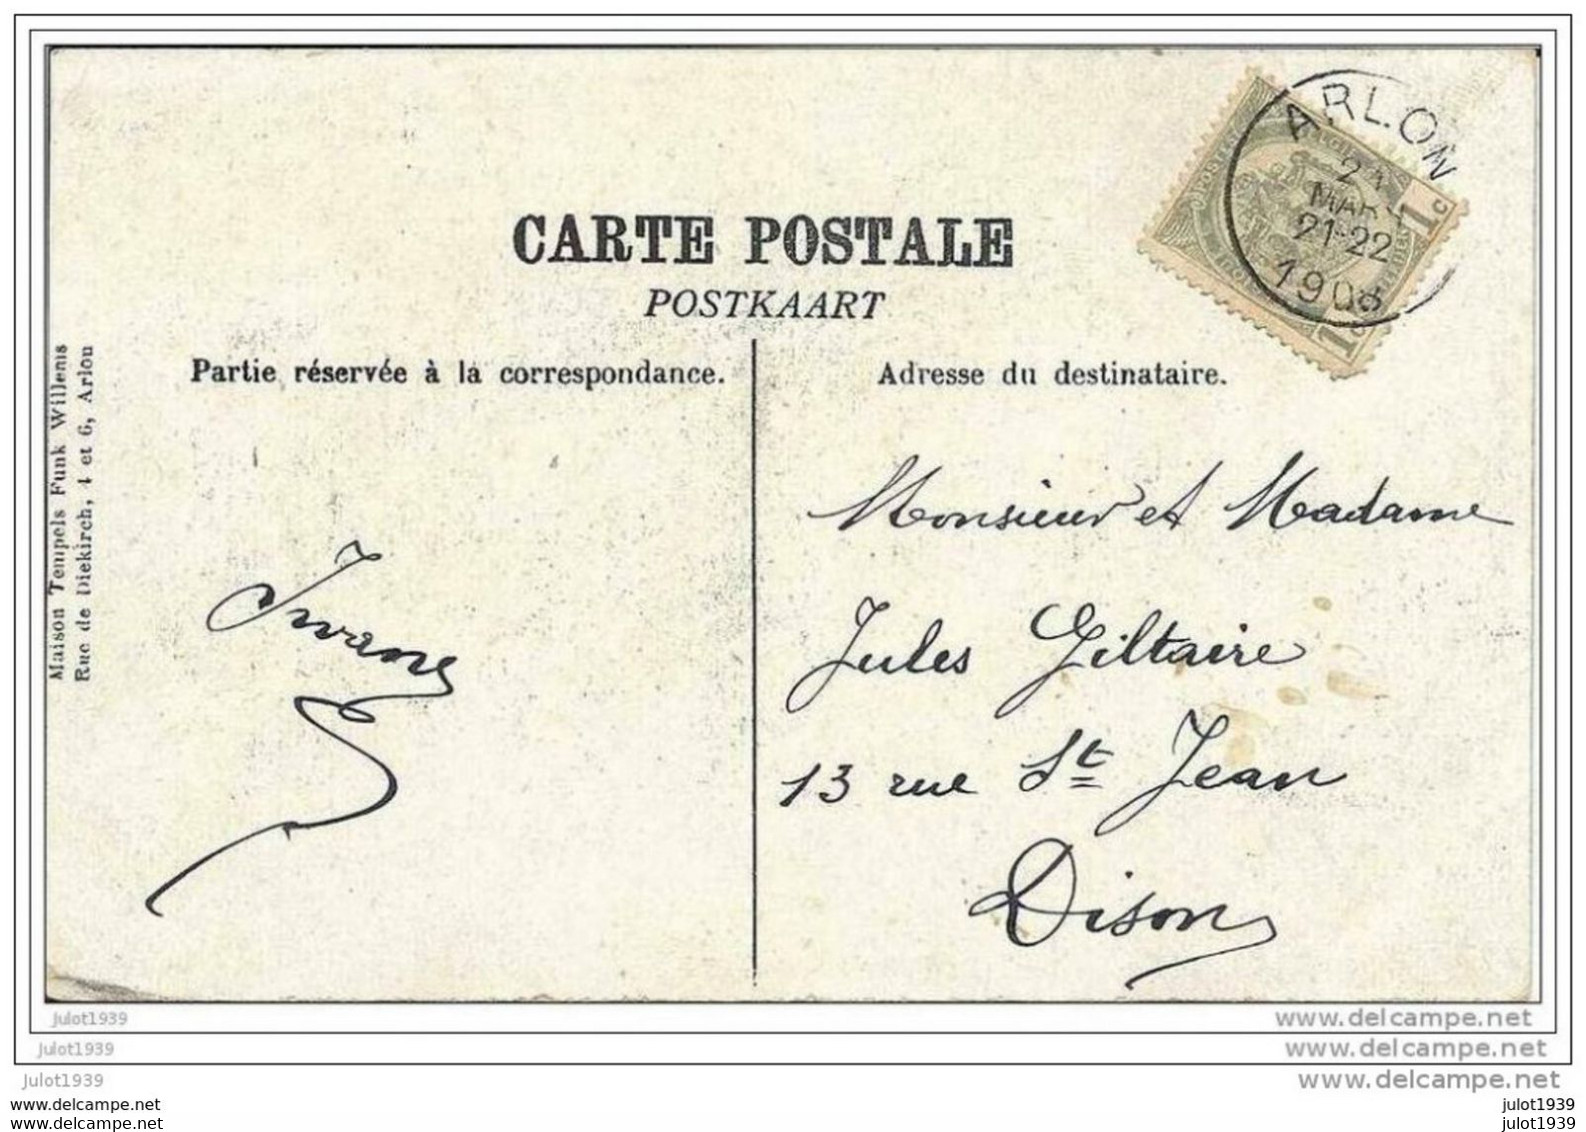 CARTE POSTALE
POSTKAART
Partie réservée à la correspondance.
Adresse du destinataire.
Maison Tempels Funk Willems
Rue de Diekirch, 4 et 6, Arlon
ARLON
MARS
21-22
1908
1c
1c
Monsieur et Madame
Jules Giltaire
13 rue St Jean
Dison
julot1939
www.delcampe.net
julot1939
www.delcampe.net
julot1939
www.delcampe.net
www.delcampe.net
julot1939
www.delcampe.net
julot1939